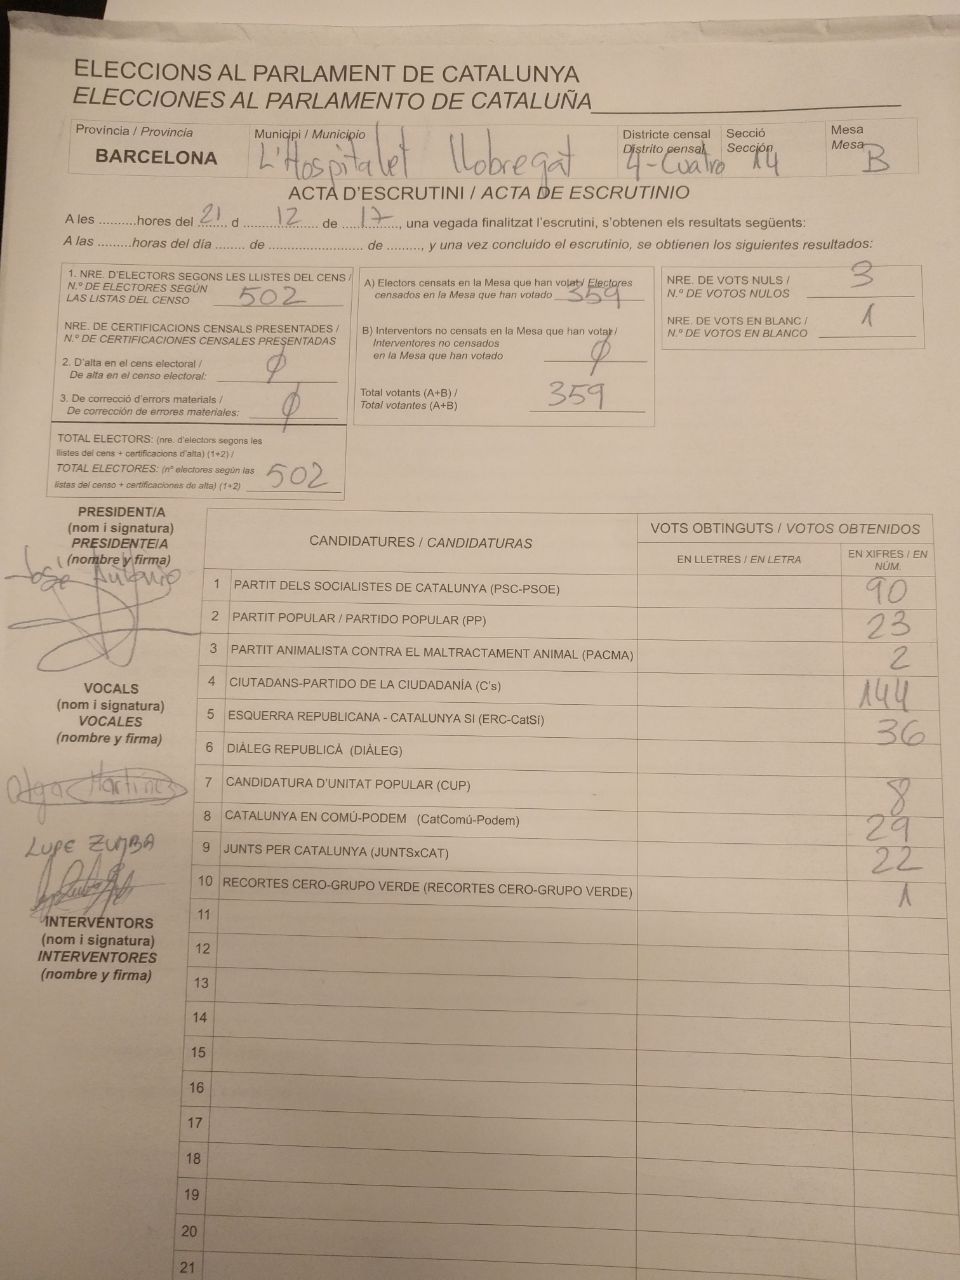 ELECCIONS AL PARLAMENT DE CATALUNYA
ELECCIONES AL PARLAMENTO DE CATALUÑA
Província / Provincia
BARCELONA
Municipi / Municipio
L'Hospitalet Llobregat
Districte censal
Distrito censal
4-Cuatro
Secció
Sección
14
Mesa
Mesa
B
ACTA D'ESCRUTINI / ACTA DE ESCRUTINIO
A les ..........hores del 21 d 12 de 17, una vegada finalitzat l'escrutini, s'obtenen els resultats següents:
A las .........horas del día ........ de ........................ de ........, y una vez concluido el escrutinio, se obtienen los siguientes resultados:
1. NRE. D'ELECTORS SEGONS LES LLISTES DEL CENS /
N.º DE ELECTORES SEGÚN
LAS LISTAS DEL CENSO 502
NRE. DE CERTIFICACIONS CENSALS PRESENTADES /
N.º DE CERTIFICACIONES CENSALES PRESENTADAS
2. D'alta en el cens electoral /
De alta en el censo electoral: 0
3. De correcció d'errors materials /
De corrección de errores materiales: 0
TOTAL ELECTORS: (nre. d'electors segons les
llistes del cens + certificacions d'alta) (1+2) /
TOTAL ELECTORES: (nº electores según las
listas del censo + certificaciones de alta) (1+2) 502
A) Electors censats en la Mesa que han votat / Electores
censados en la Mesa que han votado 359
B) Interventors no censats en la Mesa que han votat /
Interventores no censados
en la Mesa que han votado 0
Total votants (A+B) /
Total votantes (A+B) 359
NRE. DE VOTS NULS /
N.º DE VOTOS NULOS 3
NRE. DE VOTS EN BLANC /
N.º DE VOTOS EN BLANCO 1
PRESIDENT/A
(nom i signatura)
PRESIDENTE/A
(nombre y firma)
José Antonio
VOCALS
(nom i signatura)
VOCALES
(nombre y firma)
Olga Martínez
LUPE ZUMBA
INTERVENTORS
(nom i signatura)
INTERVENTORES
(nombre y firma)
CANDIDATURES / CANDIDATURAS
VOTS OBTINGUTS / VOTOS OBTENIDOS
EN LLETRES / EN LETRA
EN XIFRES / EN
NÚM.
1 PARTIT DELS SOCIALISTES DE CATALUNYA (PSC-PSOE) 90
2 PARTIT POPULAR / PARTIDO POPULAR (PP) 23
3 PARTIT ANIMALISTA CONTRA EL MALTRACTAMENT ANIMAL (PACMA) 2
4 CIUTADANS-PARTIDO DE LA CIUDADANÍA (C's) 144
5 ESQUERRA REPUBLICANA - CATALUNYA SI (ERC-CatSí) 36
6 DIÀLEG REPUBLICÀ (DIÀLEG)
7 CANDIDATURA D'UNITAT POPULAR (CUP) 8
8 CATALUNYA EN COMÚ-PODEM (CatComú-Podem) 29
9 JUNTS PER CATALUNYA (JUNTSxCAT) 22
10 RECORTES CERO-GRUPO VERDE (RECORTES CERO-GRUPO VERDE) 1
11
12
13
14
15
16
17
18
19
20
21